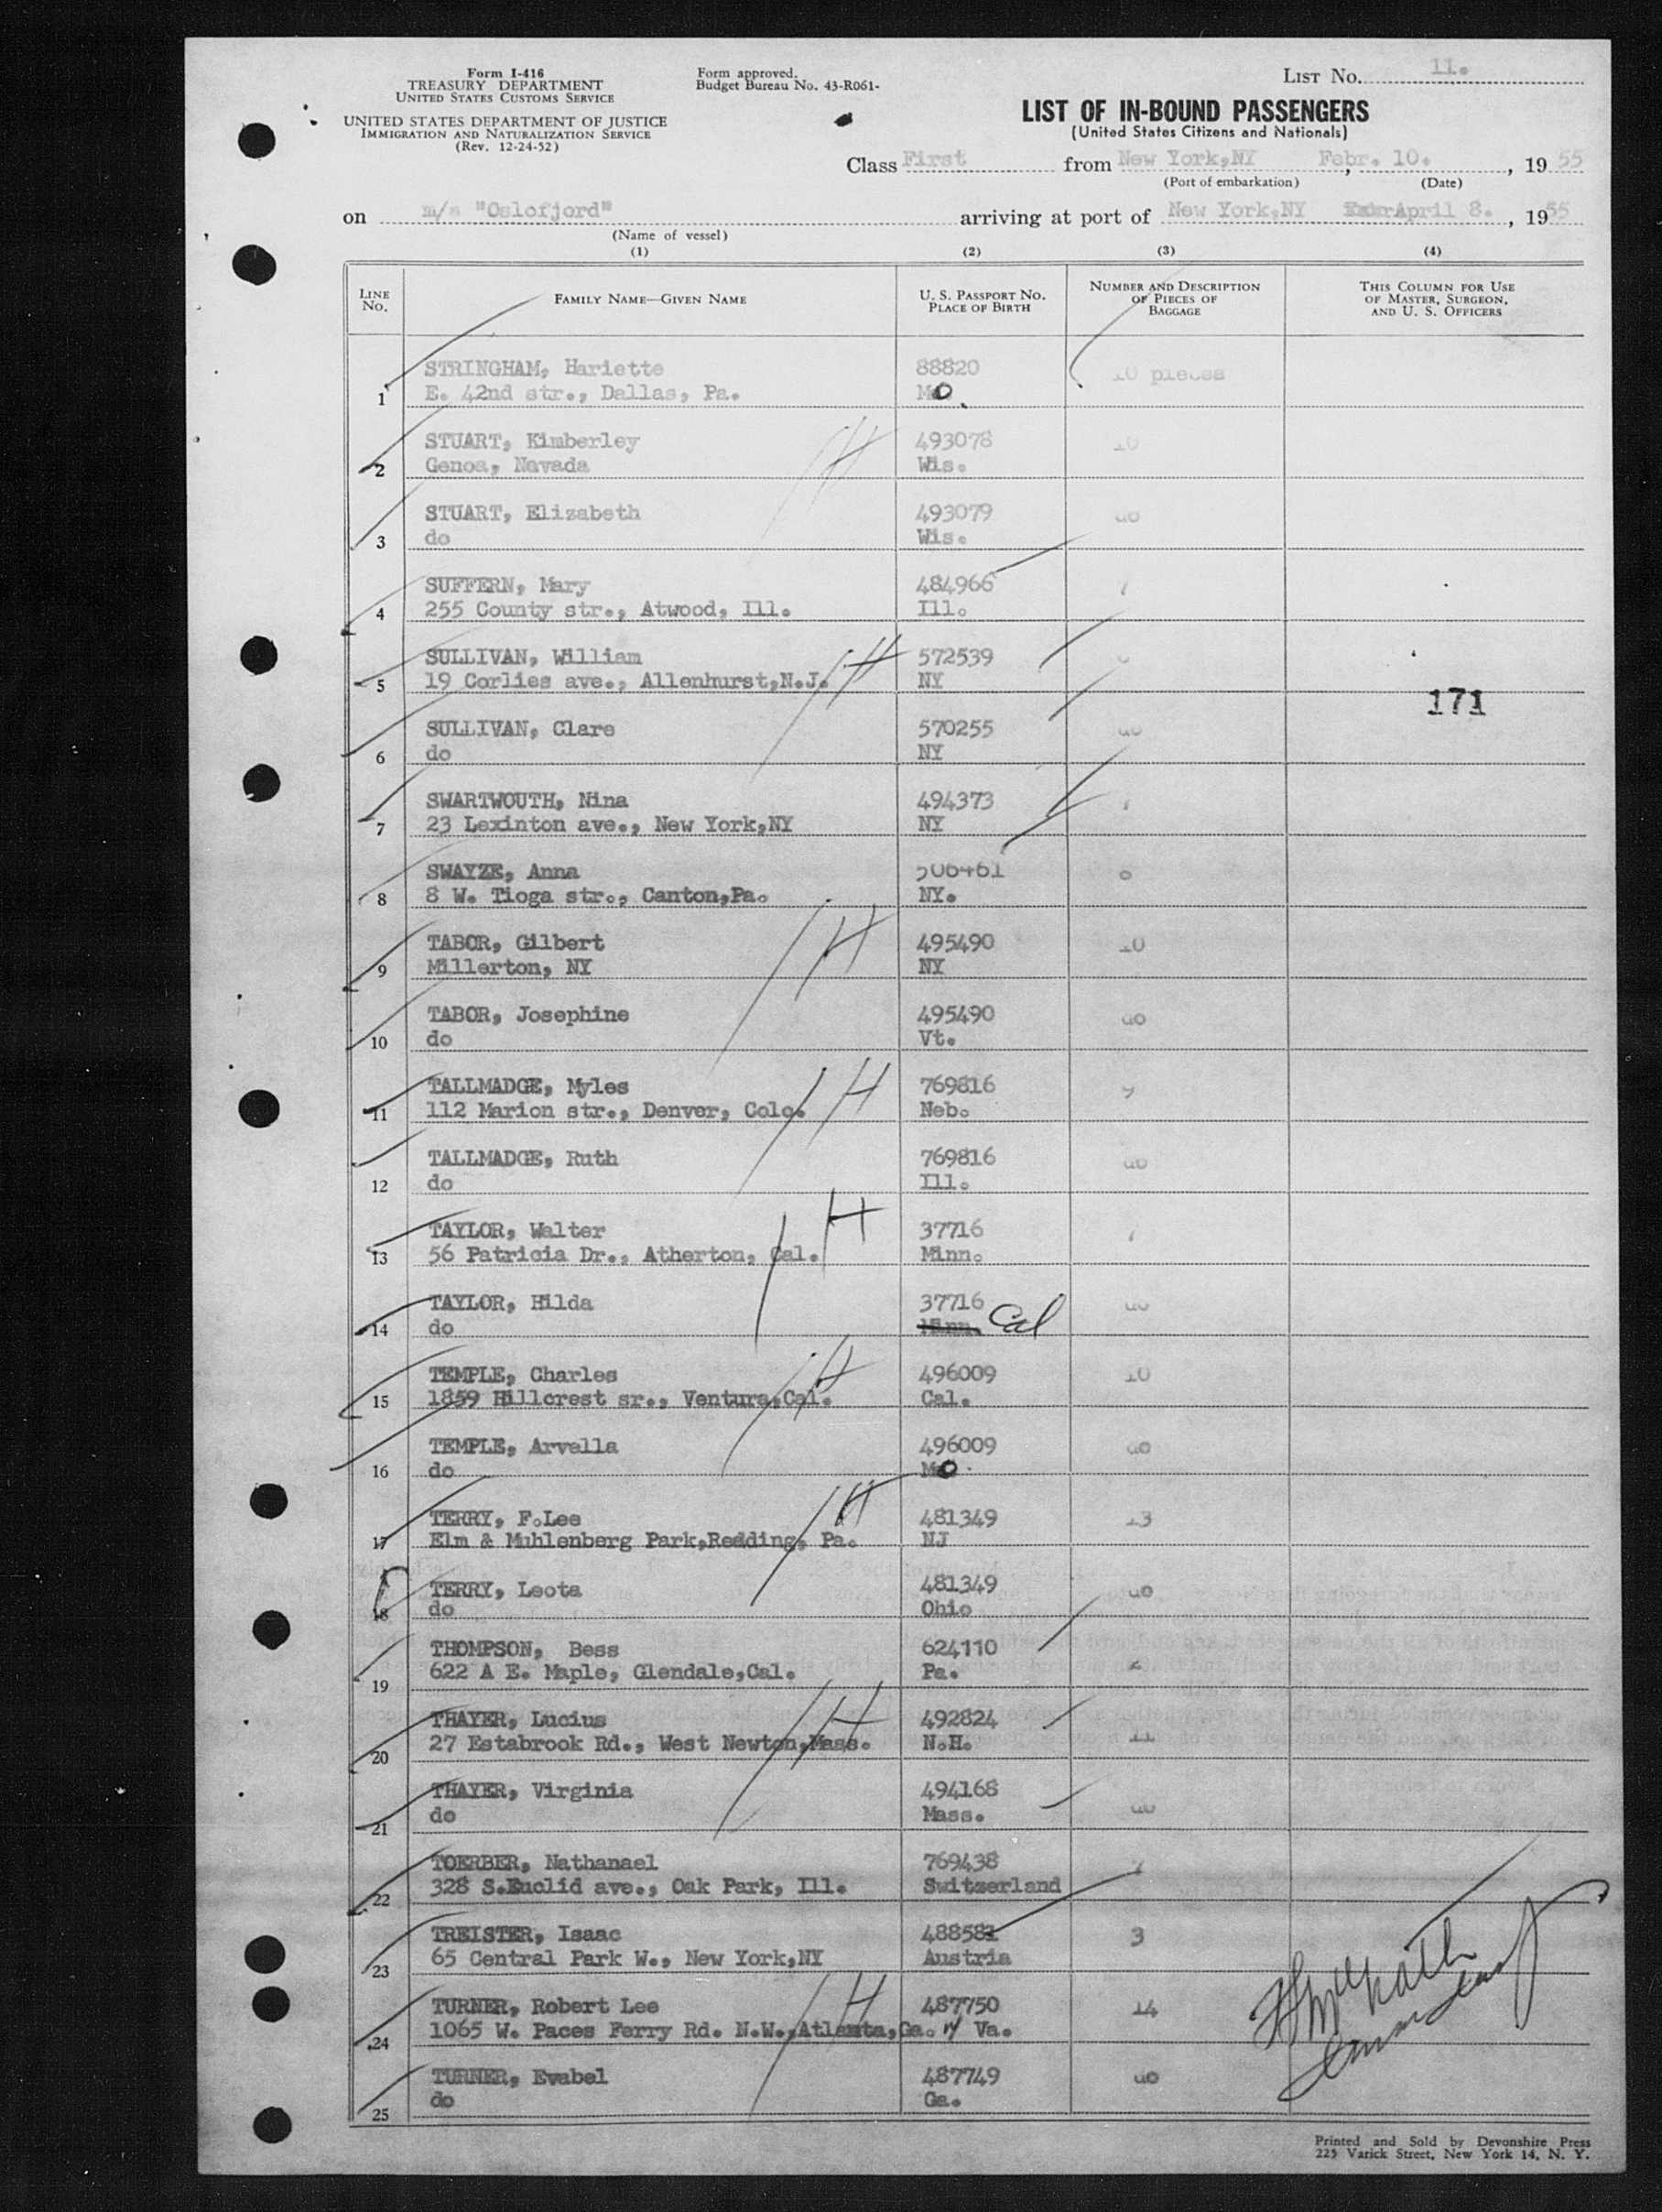 Form I-416
TREASURY DEPARTMENT
UNITED STATES CUSTOMS SERVICE
UNITED STATES DEPARTMENT OF JUSTICE
IMMIGRATION AND NATURALIZATION SERVICE
(Rev. 12-24-52)
Form approved.
Budget Bureau No. 43-R061-
LIST No. 11.
LIST OF IN-BOUND PASSENGERS
(United States Citizens and Nationals)
Class First from New York,NY, Febr. 10., 1955
(Port of embarkation) (Date)
on m/s "Oslofjord" arriving at port of New York,NY April 8., 1955
(Name of vessel)
(1) (2) (3) (4)
LINE NO. FAMILY NAME—GIVEN NAME U. S. PASSPORT NO. PLACE OF BIRTH NUMBER AND DESCRIPTION OF PIECES OF BAGGAGE THIS COLUMN FOR USE OF MASTER, SURGEON, AND U. S. OFFICERS
STRINGHAM, Hariette 88820 10 pieces
1 E. 42nd str., Dallas, Pa. MO.
STUART, Kimberley 493078 10
2 Genoa, Nevada Wis.
STUART, Elizabeth 493079 do
3 do Wis.
SUFFERN, Mary 484966
4 255 County str., Atwood, Ill. Ill.
SULLIVAN, William H 572539
5 19 Corlies ave., Allenhurst,N.J. NY
171
SULLIVAN, Clare 570255 do
6 do NY
SWARTWOUTH, Nina 494373
7 23 Lexinton ave., New York,NY NY
SWAYZE, Anna 506461
8 8 W. Tioga str., Canton,Pa. NY.
TABOR, Gilbert H 495490 10
9 Millerton, NY NY
TABOR, Josephine 495490 do
10 do Vt.
TALLMADGE, Myles H 769816
11 112 Marion str., Denver, Colo. Neb.
TALLMADGE, Ruth 769816 do
12 do Ill.
TAYLOR, Walter H 37716
13 56 Patricia Dr., Atherton, Cal. Minn.
TAYLOR, Hilda 37716 do
14 do Minn. Cal
TEMPLE, Charles H 496009 10
15 1859 Hillcrest sr., Ventura,Cal. Cal.
TEMPLE, Arvella 496009 do
16 do MO
TERRY, F.Lee H 481349 13
17 Elm & Muhlenberg Park,Redding, Pa. NJ
TERRY, Leota 481349 do
18 do Ohio
THOMPSON, Bess 624110
19 622 A E. Maple, Glendale,Cal. Pa.
THAYER, Lucius H 492824 11
20 27 Estabrook Rd., West Newton,Mass. N.H.
THAYER, Virginia 494168 do
21 do Mass.
TOERBER, Nathanael 769438
22 328 S.Euclid ave., Oak Park, Ill. Switzerland
TREISTER, Isaac 488581 3
23 65 Central Park W., New York,NY Austria
TURNER, Robert Lee H 487750 14
24 1065 W. Paces Ferry Rd. N.W.,Atlanta,Ga. W Va.
TURNER, Evabel 487749 do
25 do Ga.
Printed and Sold by Devonshire Press
225 Varick Street, New York 14, N. Y.